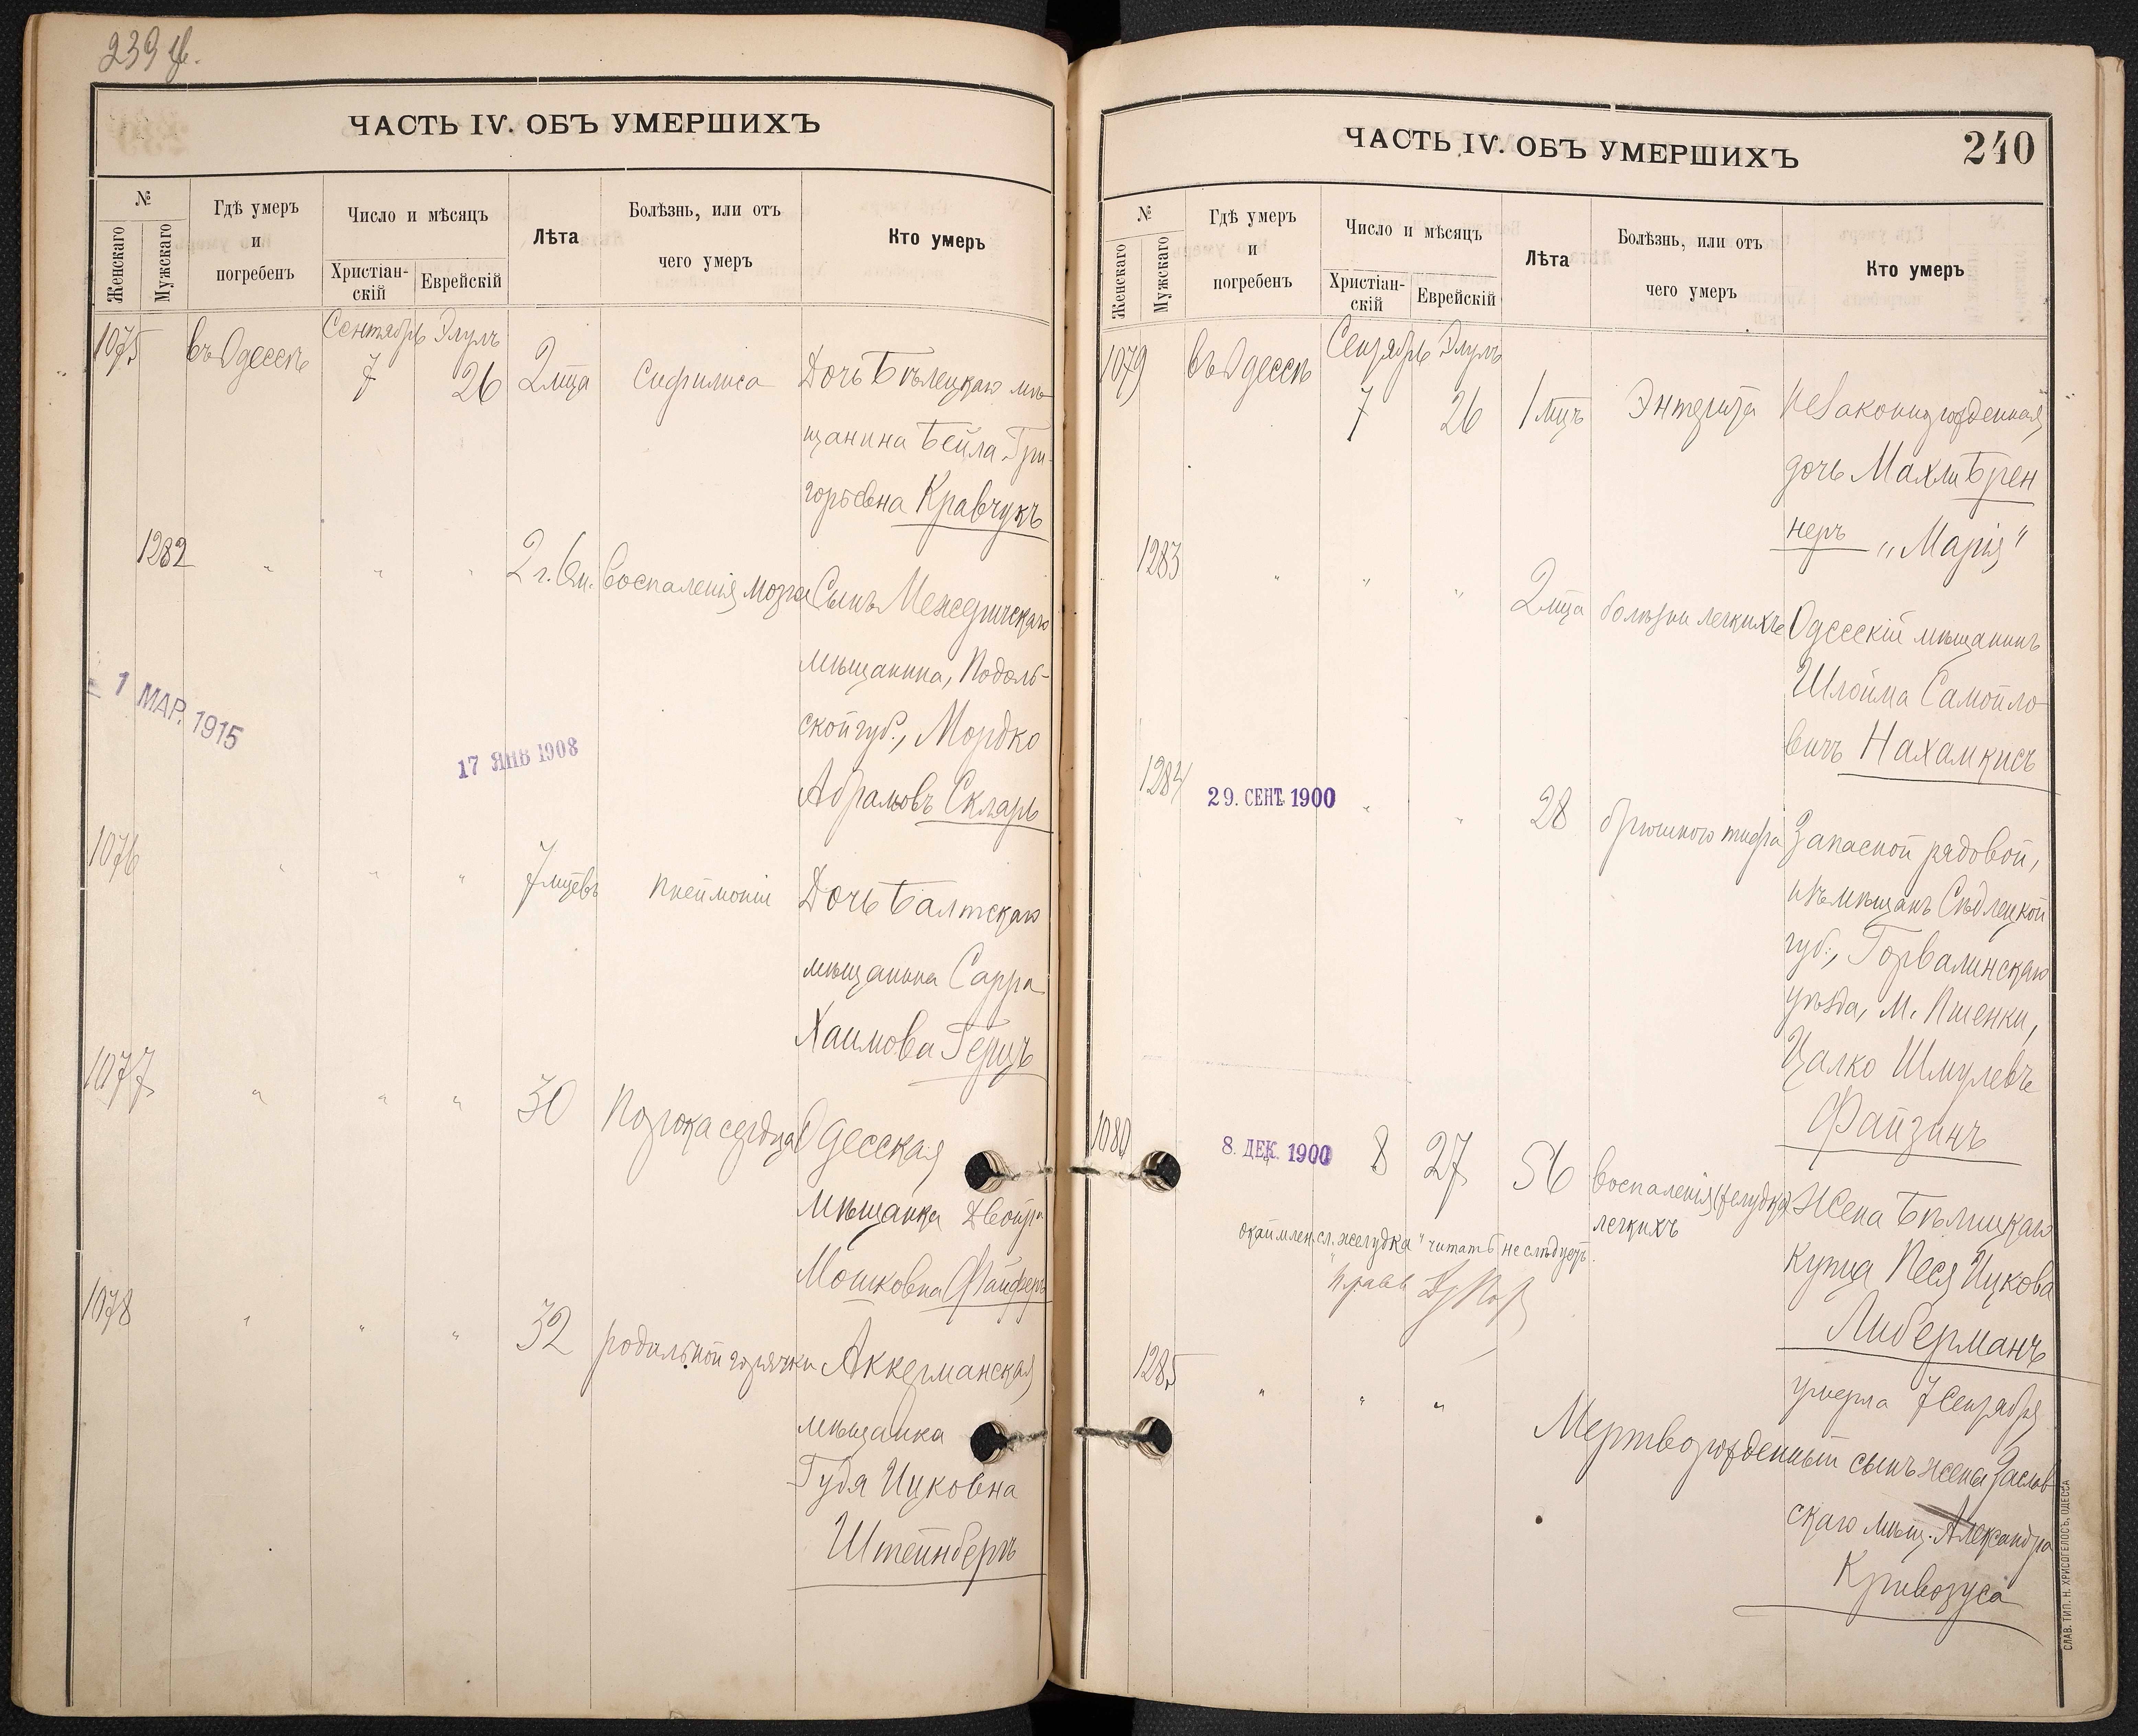 239 об.
ЧАСТЬ IV. ОБЪ УМЕРШИХЪ
№
Женскаго
Мужскаго
Гдѣ умеръ
и
погребенъ
Число и мѣсяцъ
Христіан-
скій
Еврейскій
Лѣта
Болѣзнь, или отъ
чего умеръ
Кто умеръ
Сентябрь Элулъ
1075 въ Одессѣ 7 26 2 мца Сифилиса Дочь Бѣлецкаго мѣ-
щанина Бейла Гри-
горьевна Кравчукъ
1282 " " " 2 г. 6 м. Воспаленія мозга Сынъ Межеричскаго
мѣщанина, Подоль-
ской губ., Мордко
Абрамовъ Скляръ
1 МАР. 1915
17 ЯНВ 1908
1076 " " " 7 мцевъ пнеймоніи Дочь Балтскаго
мѣщанина Сарра
Хаимова Герцъ
1077 " " " 30 порока сердца Одесская
мѣщанка Двойра
Мошковна Файферъ
1078 " " " 32 родильной горячки Аккерманская
мѣщанка
Гудя Ицковна
Штейнбергъ
ЧАСТЬ IV. ОБЪ УМЕРШИХЪ
240
№
Женскаго
Мужскаго
Гдѣ умеръ
и
погребенъ
Число и мѣсяцъ
Христіан-
скій
Еврейскій
Лѣта
Болѣзнь, или отъ
чего умеръ
Кто умеръ
Сентябрь Элулъ
1079 въ Одессѣ 7 26 1 мцъ Энтерита Незаконнорожденная
дочь Махли Брен
неръ „Марія"
1283 " " " 2 мца болѣзни легкихъ Одесскій мѣщанинъ
Шлойма Самойло
вичъ Нахамкисъ
1284 29. СЕНТ. 1900 " " 28 брюшного тифа Запасной рядовой,
изъ мѣщанъ Сѣдлецкой
губ., Горвалинскаго
уѣзда, М. Пшенки,
Цалко Шмулевъ
Файзинъ
1080 8. ДЕК. 1900 8 27 56 воспаленія (желудка) Жена Бѣлицкаго
легкихъ
окаймлен. сл. „желудка" читать не слѣдуетъ.
купца Песя Ицкова
Либерманъ
умерла 7 Сентября
1285 " " " Мертворожденный сынъ жены Заслав
скаго мѣщ. Александра
Криворуса
СЛАВ. ТИП. Н. ХРИСОГЕЛОСЪ, ОДЕССА